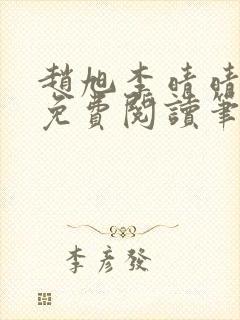 趙旭李晴晴
免費閱讀筆
李彥發